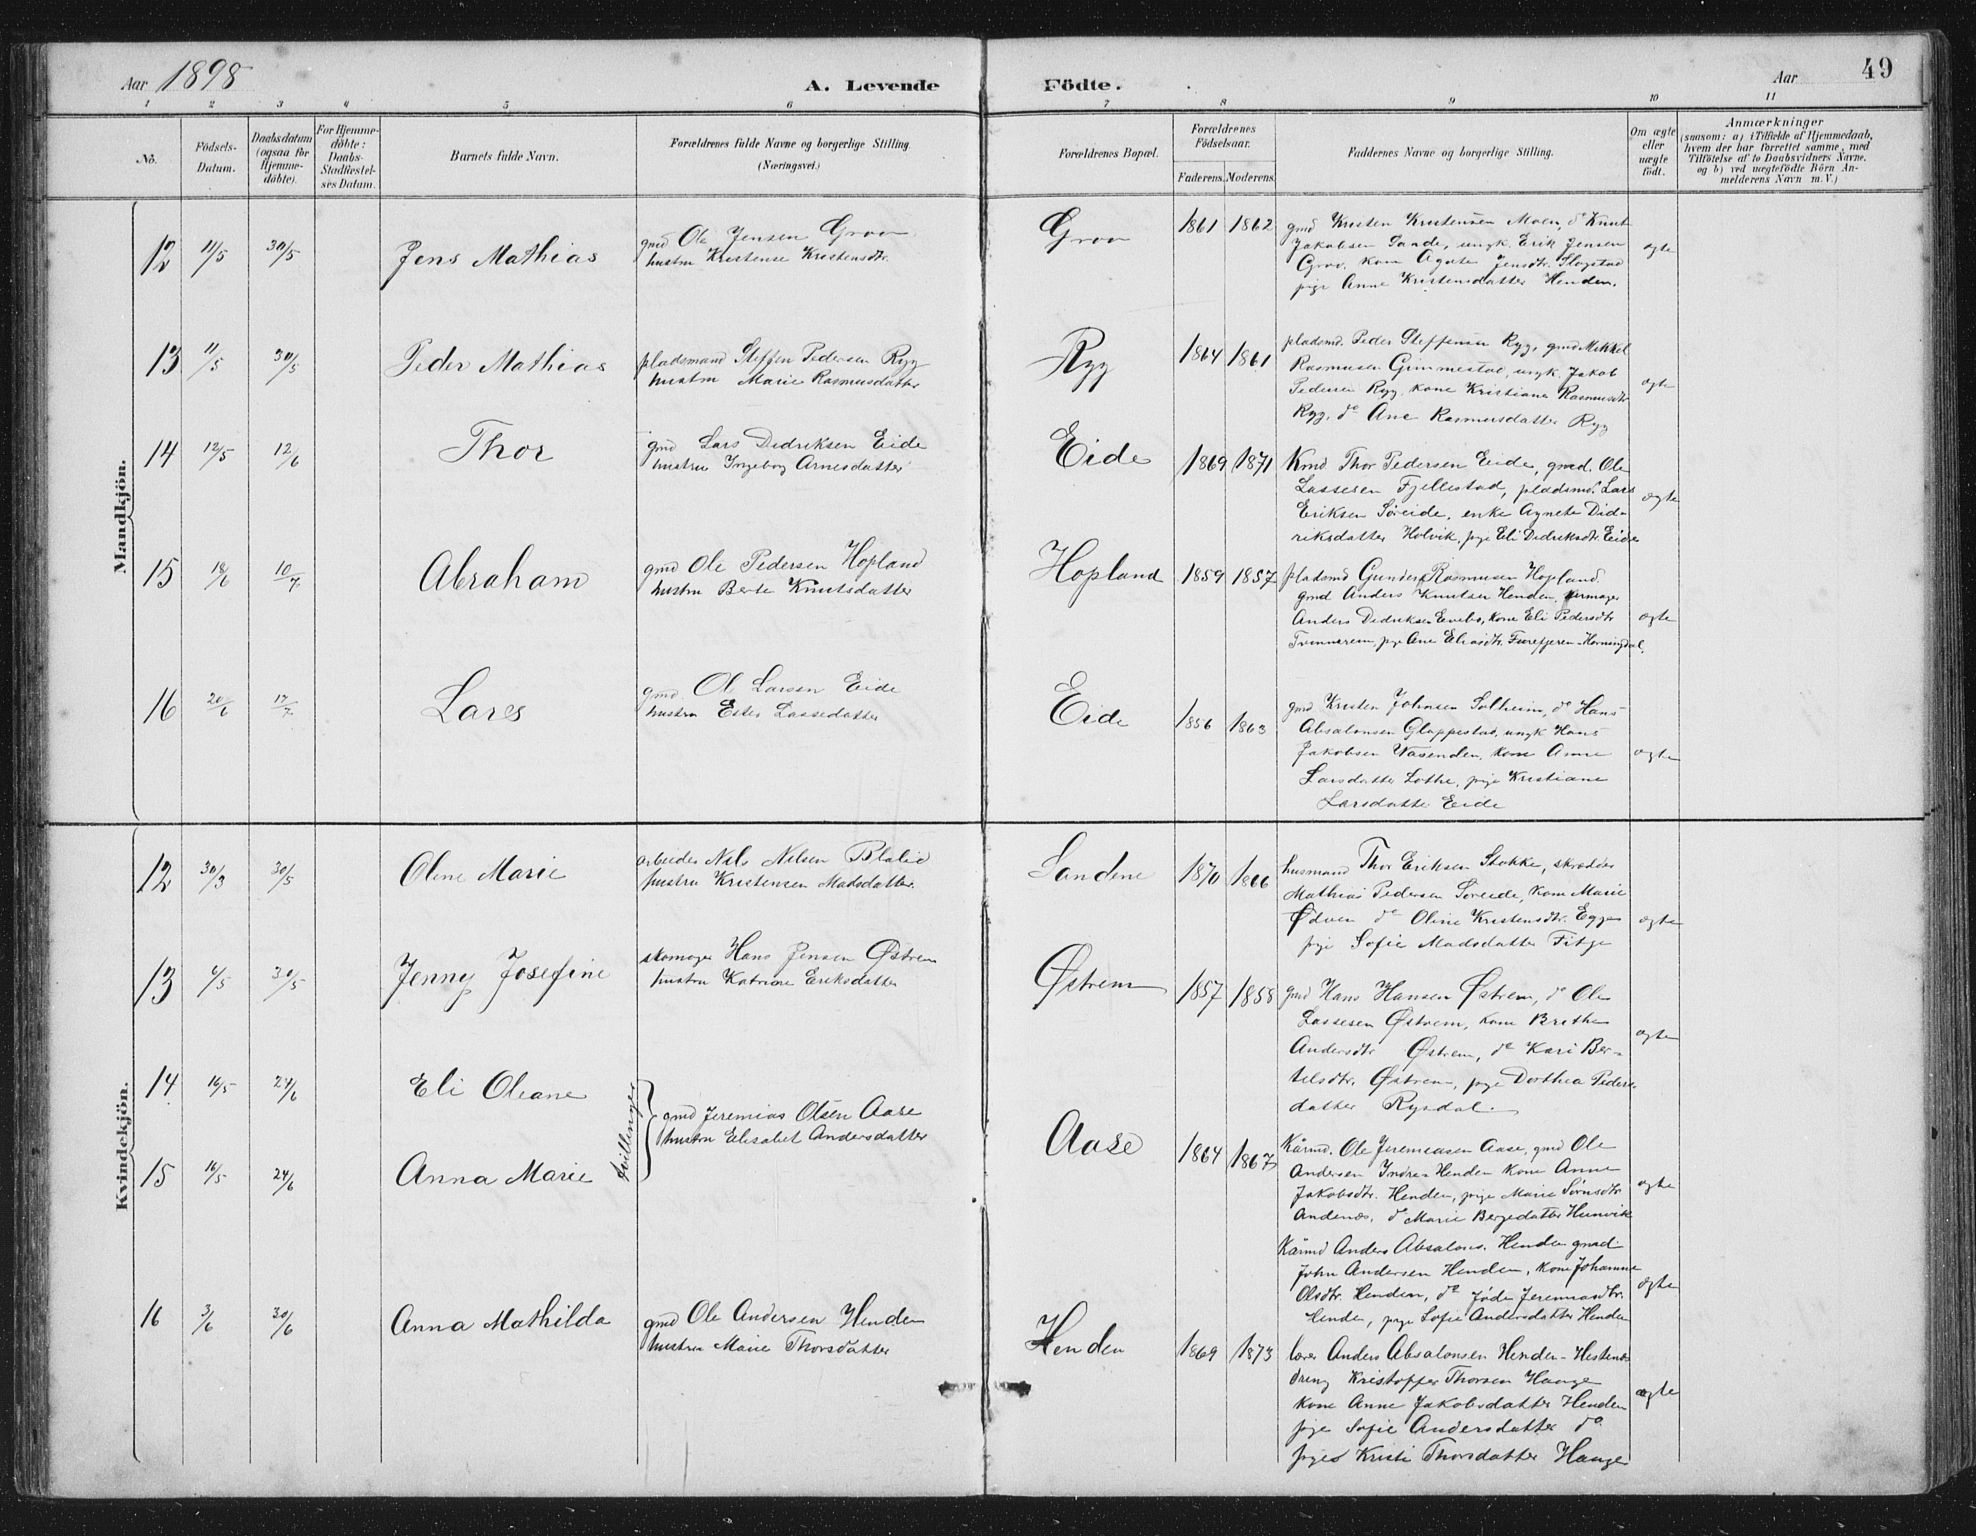 Aar 1898
A. Levende Födte.
Aar
49
1 2 3 4 5 6 7 8 9 10 11
No.
Födsels-
Datum.
Daabsdatum
(ogsaa for
Hjemme-
döbte).
For Hjemme-
döbte:
Daabs-
Stadfæstel-
ses Datum.
Barnets fulde Navn.
Forældrenes fulde Navne og borgerlige Stilling
(Næringsvei.)
Forældrenes Bopæl.
Forældrenes
Födselsaar.
Faderens. Moderens.
Faddernes Navne og borgerlige Stilling.
Om ægte
eller
uægte
födt.
Anmærkninger
(saasom: a) i Tilfælde af Hjemmedaab,
hvem der har forrettet samme, med
Tilföielse af to Daabsvidners Navne.
og b) ved uægtefödte Börn An-
melderens Navn m. V.)
Mandkjön.
12 11/5 30/5 Jens Mathias
gmd Ole Jensen Grov
hustru Kristense Kristensdtr.
Grov 1861 1862
gmd Kristen Kristensen Moen, do Knut
Jakobsen Sande, ungk. Erik Jensen
Grov, kone Agate Jensdtr.
pige Anne Kristensdatter Henden.
ægte
13 11/5 30/5 Peder Mathias
pladsmand Steffen Pedersen Ryg
hustru Marie Rasmusdatter
Ryg 1864 1861
pladsmd. Peder Steffensen Ryg, gmd Mikkel
Rasmusen Gimmestad, ungk Jakob
Pedersen Ryg, kone Kristiane Rasmusdtr
Ryg, do Ane Rasmusdatter Ryg
ægte
14 12/5 12/6 Thor
gmd Lars Didriksen Eide
hustru Ingeborg Arnesdatter
Eide 1869 1871
Kmd Thor Pedersen Eide, gmd. Ole
Lassesen Fjellestad, pladsmd. Lars
Eriksen Søreide, enke Agnete Did-
riksdatter Holvik, pige Eli Didriksdtr. Eide
ægte
15 18/6 10/7 Abraham
gmd Ole Pedersen Hopland
hustru Berte Knutsdatter
Hopland 1859 1857
pladsmd Gunder Rasmusen Hopland.
gmd Anders Knutsen Henden,
Anders Didriksen Evebø, kone Eli Pedersdtr
pige Ane Eliasdtr. Horningdal.
ægte
16 20/6 17/7 Lars
gmd. Ole Larsen Eide
hustru Ester Lassedatter
Eide 1856 1863
gmd Kristen Johnsen Solheim, do Hans
Absalonsen Gloppestad, ungk Hans
Jakobsen Vasenden, kone Anne
Larsdatter Lothe, pige Kristiane
Larsdatter Eide
ægte
Kvindekjön.
12 30/3 30/5 Oline Marie
arbeider Nils Nilsen
hustru Kristensen Madsdatter.
Sandene 1870 1866
husmand Thor Eriksen Stokke, skrædder
Mathias Pedersen Søreide, kone Marie
Ødven do Oline Kristensdtr. Egge
pige Sofie Madsdatter Fitje
ægte
13 6/5 30/5 Jenny Josefine
skomager Hans Jensen Østrem
hustru Katrine Eriksdatter
Østrem 1857 1858
gmd Hans Hansen Østrem, do Ole
Lassesen Østrem, kone Brithe
Andersdtr Østrem, do Kari Ber-
telsdtr. Østrem, pige Dorthea Peders
datter Rysdal.
ægte
14 16/5 24/6 Eli Oleane
Tvillinger
gmd Jeremias Olsen Aase
hustru Elisabet Andersdatter
15 16/5 24/6 Anna Marie
Aase 1864 1867
Kårmd. Ole Jeremiasen Aase, gmd Ole
Andersen Indre-Henden kone Anne
Jakobsdtr. Henden, pige Marie Sørnsdtr
Andenæs, do Marie Bergedatter
ægte
Kårmd Anders Absalons. Henden gmd
John Andersen Henden, kone Johanne
Olsdtr. Henden, do Jøde Jeremiasdtr.
Henden, pige Sofie Andersdatter Henden
ægte
16 3/6 30/6 Anna Mathilda
gmd Ole Andersen Henden
hustru Marie Thorsdatter
Henden 1869 1873
lærer Anders Absalonsen Henden-Hestenes
dreng Kristoffer Thorsen Hauge
kone Anne Jakobsdatter Henden
pige Sofie Andersdatter do
pige Kristi Thorsdatter Hauge
ægte